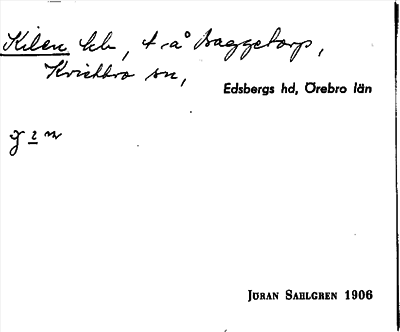 Kilen hh, t. å Baggetorp,
Kvistbro sn,
Edsbergs hd, Örebro län
JÖRAN SAHLGREN 1906